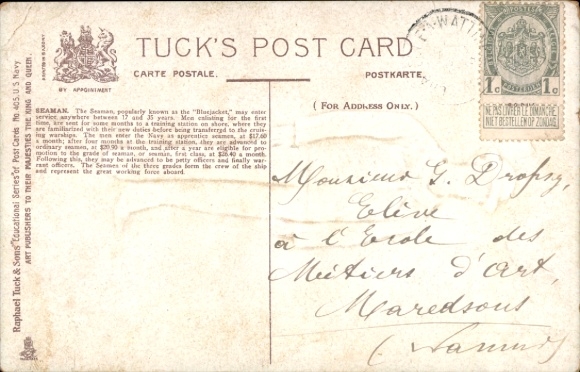 TUCK'S POST CARD
CARTE POSTALE.
POSTKARTE.
BY APPOINTMENT
(FOR ADDRESS ONLY.)
SEAMAN. The Seaman, popularly known as the "Bluejacket," may enter
service anywhere between 17 and 35 years. Men enlisting for the first
time, are sent for some months to a training station on shore, where they
are familiarized with their new duties before being transferred to the cruis-
ing warships. The men enter the Navy as apprentice seamen, at $17.60
a month; after four months at the training station, they are advanced to
ordinary seamen, at $20.90 a month, and after a year are eligible for pro-
motion to the grade of seaman, or seaman, first class, at $26.40 a month.
Following this, they may be advanced to petty officers and finally war-
rant officers. The Seamen of the three grades form the crew of the ship
and represent the great working force aboard.
Raphael Tuck & Sons' Educational Series of Post Cards No. 405. U.S. Navy
ART PUBLISHERS TO THEIR MAJESTIES THE KING AND QUEEN.
1c 1c
NE PAS LIVRER LE DIMANCHE
NIET BESTELLEN OP ZONDAG
Monsieur G. Dropsy,
Elève
à l'Ecole des
Métiers d'Art,
Maredsous
(Namur)